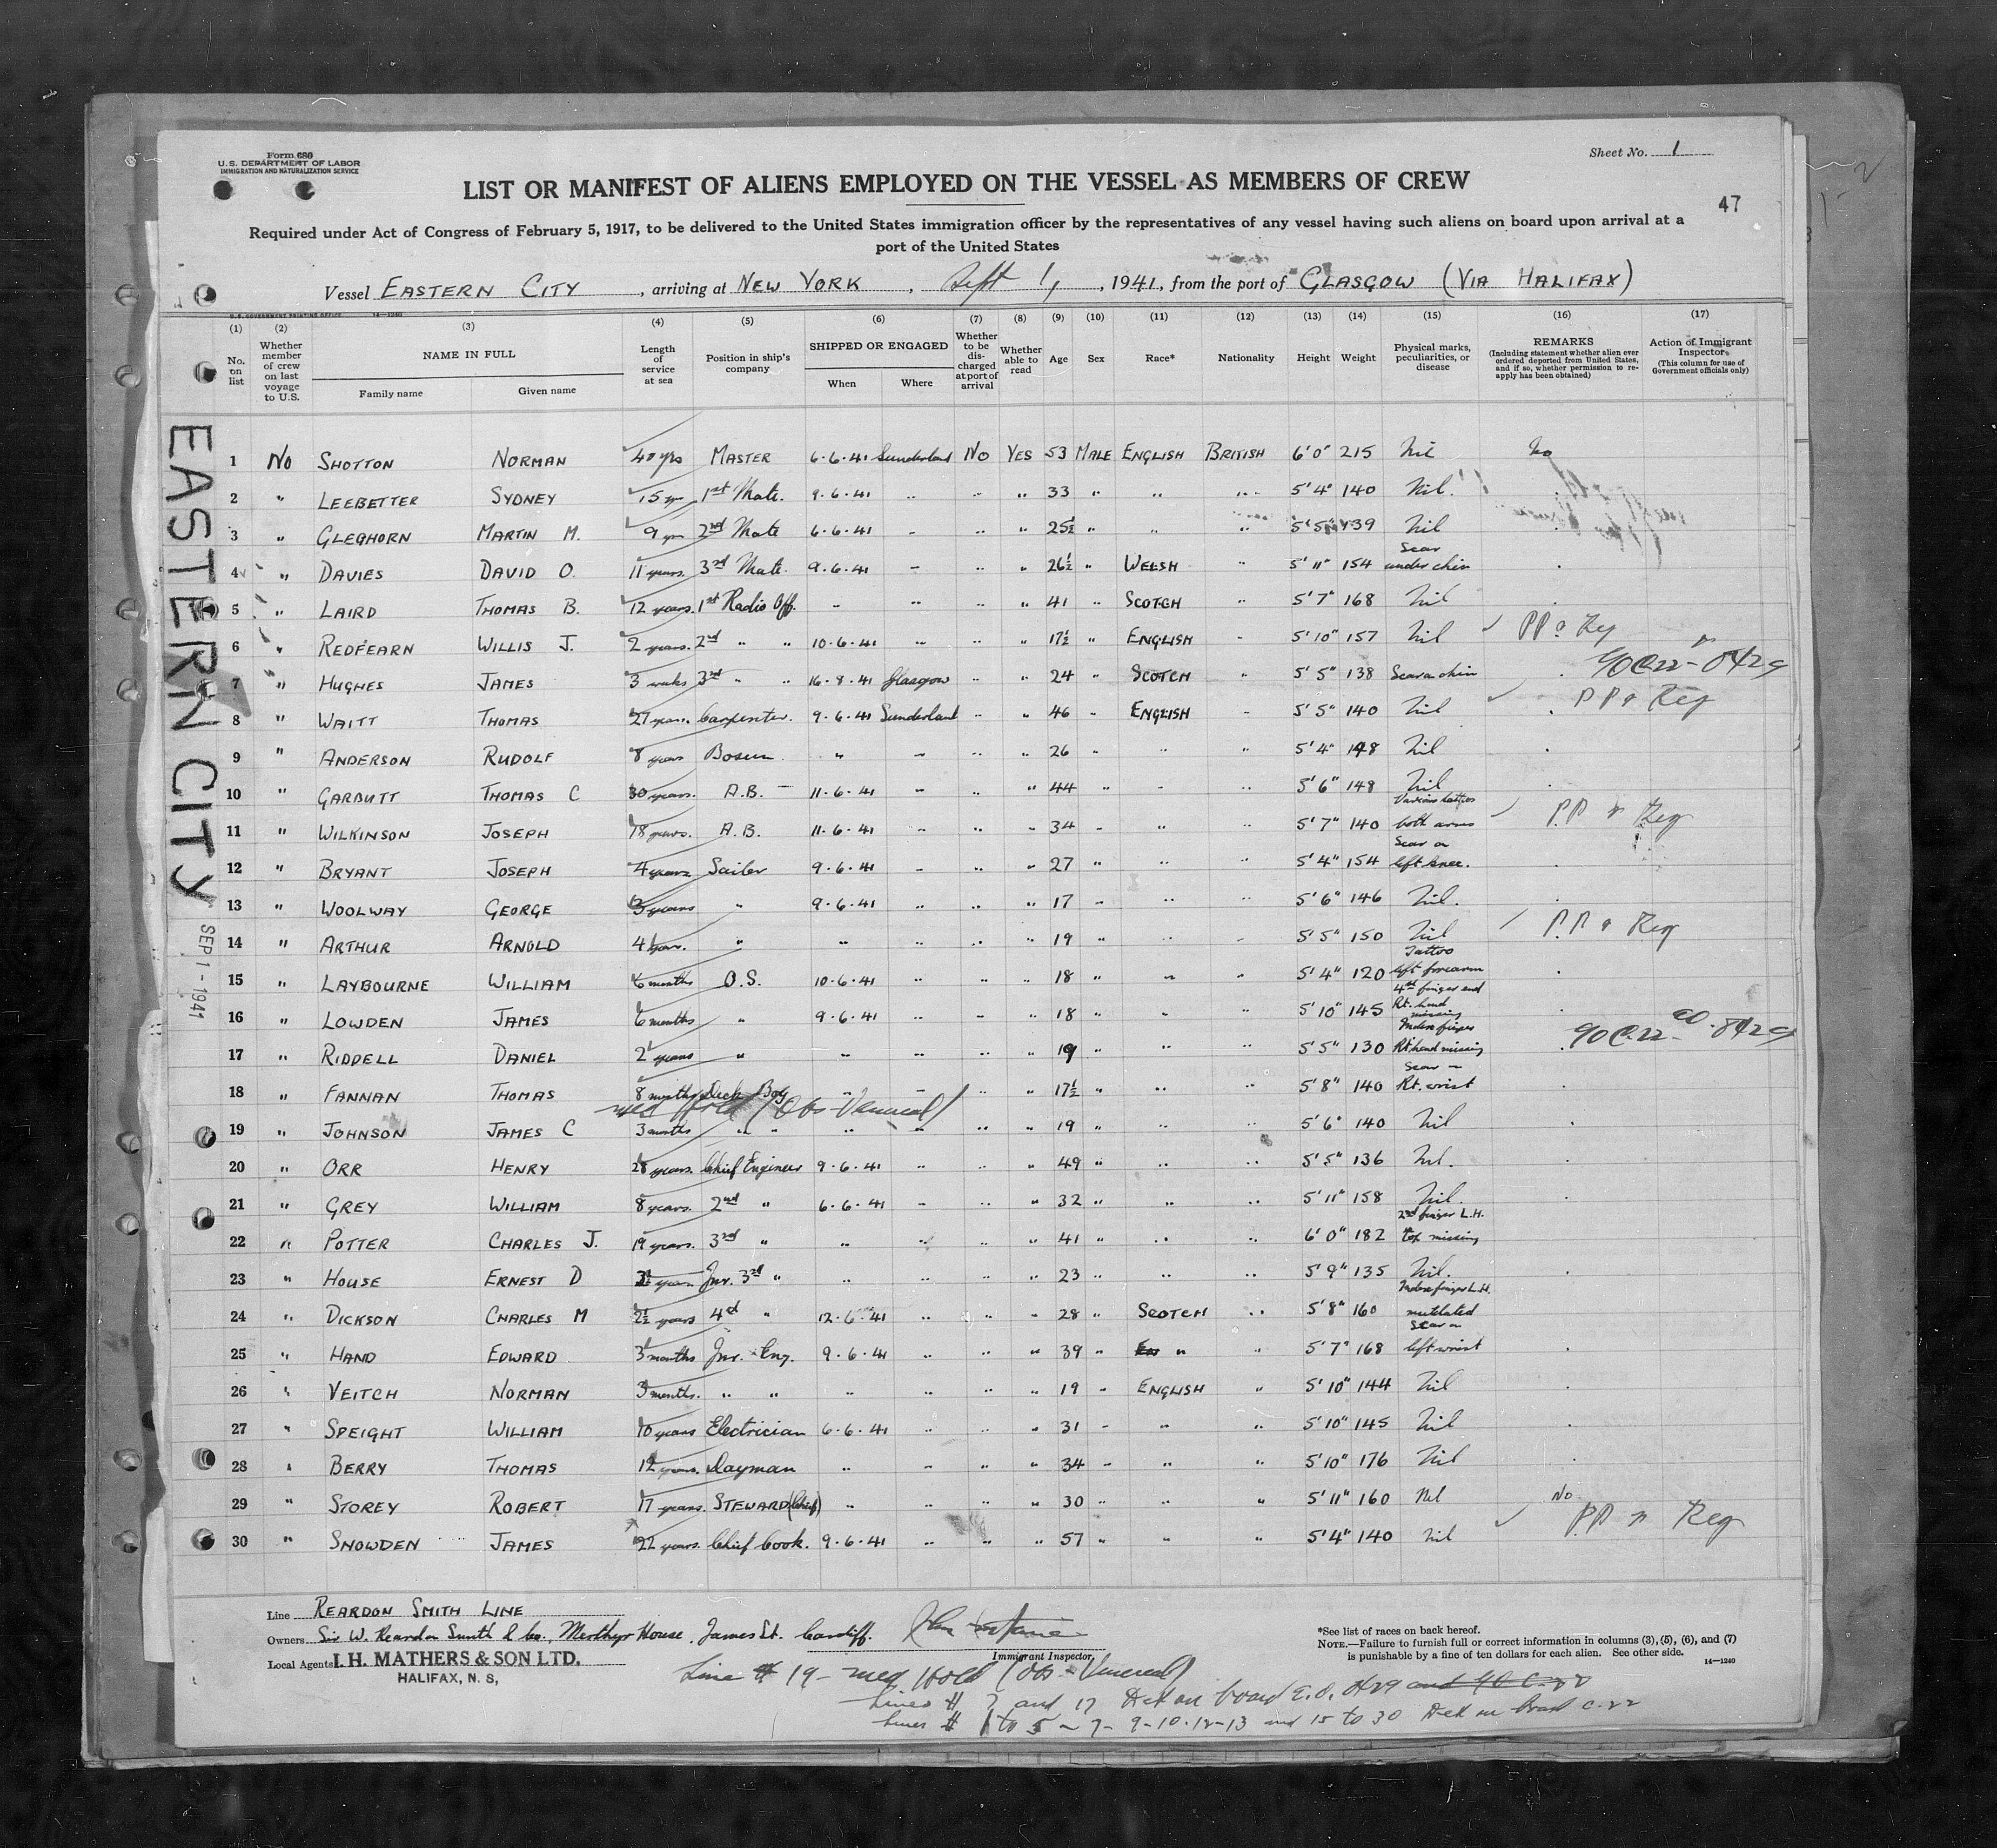 Form 680
U.S. DEPARTMENT OF LABOR
IMMIGRATION AND NATURALIZATION SERVICE
Sheet No. 1
LIST OR MANIFEST OF ALIENS EMPLOYED ON THE VESSEL AS MEMBERS OF CREW
47
Required under Act of Congress of February 5, 1917, to be delivered to the United States immigration officer by the representatives of any vessel having such aliens on board upon arrival at a
port of the United States
Vessel EASTERN CITY, arriving at NEW YORK, Sept 1, 1941, from the port of GLASGOW (VIA HALIFAX)
U.S. GOVERNMENT PRINTING OFFICE 14—1240
(1) No. on list
(2) Whether member of crew on last voyage to U.S.
(3) NAME IN FULL Family name Given name
(4) Length of service at sea
(5) Position in ship's company
(6) SHIPPED OR ENGAGED When Where
(7) Whether to be discharged at port of arrival
(8) Whether able to read
(9) Age
(10) Sex
(11) Race*
(12) Nationality
(13) Height
(14) Weight
(15) Physical marks, peculiarities, or disease
(16) REMARKS (Including statement whether alien ever ordered deported from United States, and if so, whether permission to reapply has been obtained)
(17) Action of Immigrant Inspector (This column for use of Government officials only)
EASTERN CITY
SEP 1 - 1941
1 No SHOTTON NORMAN 40 yrs MASTER 6.6.41 Sunderland No YES 53 MALE ENGLISH BRITISH 6'0" 215 Nil No
2 " LEEBETTER SYDNEY 15 yrs 1st Mate. 9.6.41 " " " 33 " " " 5'4" 140 Nil.
3 " GLEGHORN MARTIN M. 9 yrs 2nd Mate 6.6.41 " " " 25½ " " " 5'5" 139 Nil
4 " DAVIES DAVID O. 11 years. 3rd Mate. 9.6.41 " " " 26½ " WELSH " 5'11" 154 Scar under chin
5 " LAIRD THOMAS B. 12 years. 1st Radio Off. " " " " 41 " SCOTCH " 5'7" 168 Nil
6 " REDFEARN WILLIS J. 2 years. 2nd " " 10.6.41 " " " 17½ " ENGLISH " 5'10" 157 Nil PP & Reg
7 " HUGHES JAMES 3 weeks 3rd " " 16.8.41 Glasgow " " 24 " SCOTCH " 5'5" 138 Scar on chin
8 " WAITT THOMAS 27 years. Carpenter. 9.6.41 Sunderland " " 46 " ENGLISH " 5'5" 140 Nil PP & Reg
9 " ANDERSON RUDOLF 8 years Bosun " " " " 26 " " " 5'4" 148 Nil
10 " GARBUTT THOMAS C 30 years. A.B. 11.6.41 " " " 44 " " " 5'6" 148 Nil
11 " WILKINSON JOSEPH 18 years. A.B. 11.6.41 " " " 34 " " " 5'7" 140 Various tattoos both arms PP & Reg
12 " BRYANT JOSEPH 4 years Sailor 9.6.41 " " " 27 " " " 5'4" 154 Scar on left knee.
13 " WOOLWAY GEORGE 3 years " 9.6.41 " " " 17 " " " 5'6" 146 Nil.
14 " ARTHUR ARNOLD 4 years. " " " " " 19 " " " 5'5" 150 Nil PP & Reg
15 " LAYBOURNE WILLIAM 6 months O.S. 10.6.41 " " " 18 " " " 5'4" 120 Tattoo left forearm
16 " LOWDEN JAMES 6 months " 9.6.41 " " " 18 " " " 5'10" 145 4th finger end Rt. hand missing
17 " RIDDELL DANIEL 2 years " " " " " 19 " " " 5'5" 130 Index finger Rt hand missing
18 " FANNAN THOMAS 8 months Deck Boy " " " " 17½ " " " 5'8" 140 Scar on Rt. wrist
Med Hold (Obs-Venereal)
19 " JOHNSON JAMES C 3 months " " " " " " 19 " " " 5'6" 140 Nil
20 " ORR HENRY 28 years. Chief Engineer 9.6.41 " " " 49 " " " 5'5" 136 Nil.
21 " GREY WILLIAM 8 years. 2nd " 6.6.41 " " " 32 " " " 5'11" 158 Nil.
22 " POTTER CHARLES J. 19 years. 3rd " " " " " 41 " " " 6'0" 182 2nd finger L.H. top missing
23 " HOUSE ERNEST D years Jnr. 3rd " " " " " 23 " " " 5'9" 135 Nil.
24 " DICKSON CHARLES M 2½ years 4th " 12.6.41 " " " 28 " SCOTCH " 5'8" 160 Index finger L.H. mutilated
25 " HAND EDWARD 3 months Jnr. Eng. 9.6.41 " " " 39 " " " 5'7" 168 Scar on left wrist
26 " VEITCH NORMAN 3 months. " " " " " " 19 " ENGLISH " 5'10" 144 Nil
27 " SPEIGHT WILLIAM 10 years Electrician 6.6.41 " " " 31 " " " 5'10" 145 Nil
28 " BERRY THOMAS 12 years. Dayman " " " " 34 " " " 5'10" 176 Nil
29 " STOREY ROBERT 17 years. STEWARD (Chief) " " " " 30 " " " 5'11" 160 Nil No
30 " SNOWDEN JAMES 22 years. Chief Cook. 9.6.41 " " " 57 " " " 5'4" 140 Nil PP & Reg
Line REARDON SMITH LINE
Owners Sir W. Reardon Smith & Co., Merthyr House, James St. Cardiff.
Local Agents I. H. MATHERS & SON LTD.
HALIFAX, N. S,
Immigrant Inspector.
*See list of races on back hereof.
NOTE.—Failure to furnish full or correct information in columns (3), (5), (6), and (7)
is punishable by a fine of ten dollars for each alien. See other side.
14—1240
Line # 19 - Med Hold (Obs - Venereal)
Lines # 7 and 17 Det on board E.O. 8429 and 90 C-22
Lines # 1 to 5 - 7 - 9-10-12-13 and 15 to 30 Det on board C-22